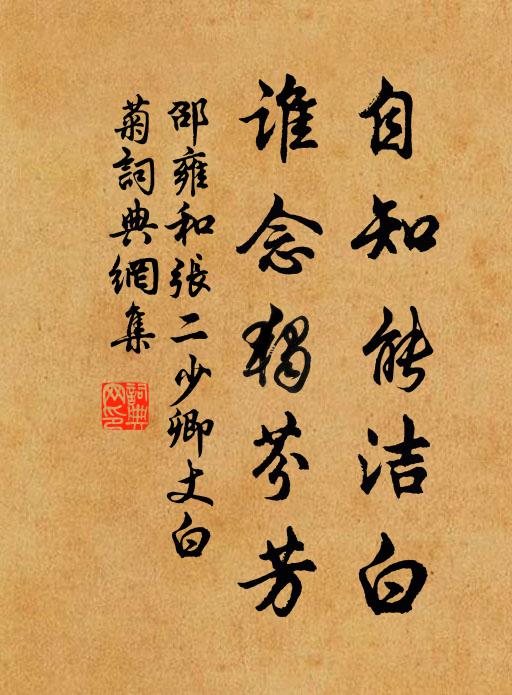 自知能洁白
谁念独芬芳
邵雍和張二少卿丈白
菊詞典網集
詞典
网印